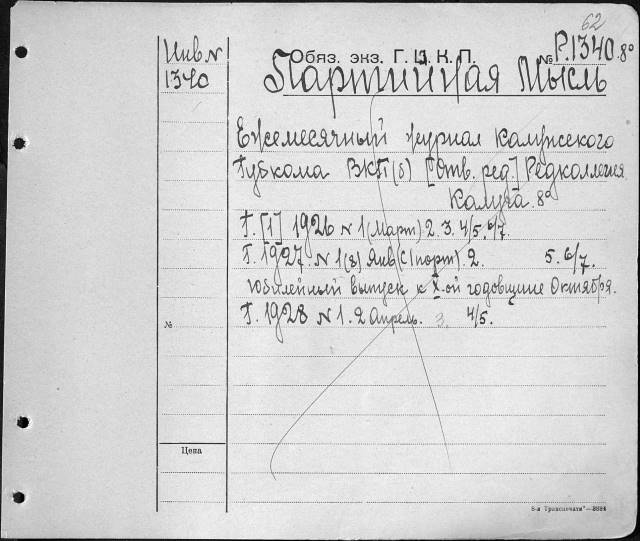 62
Инв N
1340
Обяз. экз. Г. Ц. К. П.
№ Р.1340.8º
Партийная Мысль
Ежемесячный журнал Калужского
Губкома ВКП(б) [Отв. ред.] Редколлегия
Калуга. 8º
Г. [1] 1926 N 1 (Март) 2. 3. 4/5. 6/7.
Г. 1927. N 1(8) Янв (с 1 порт) 2. 5. 6/7.
Юбилейный выпуск к X-ой годовщине Октября.
Г. 1928 N 1. 2 Апрель. 3. 4/5.
№
Цена